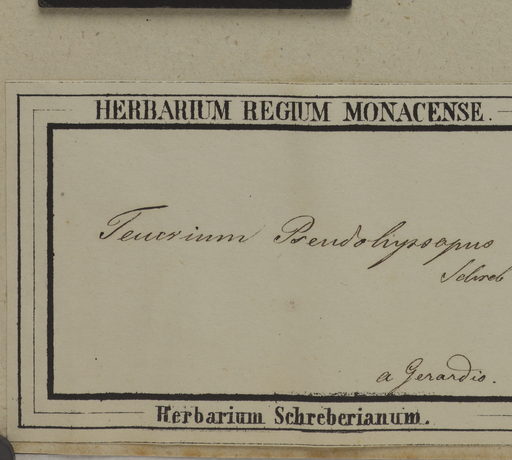 HERBARIUM REGIUM MONACENSE.
Teucrium Pseudohyssopus
Schreb
a Gerardio.
Herbarium Schreberianum.